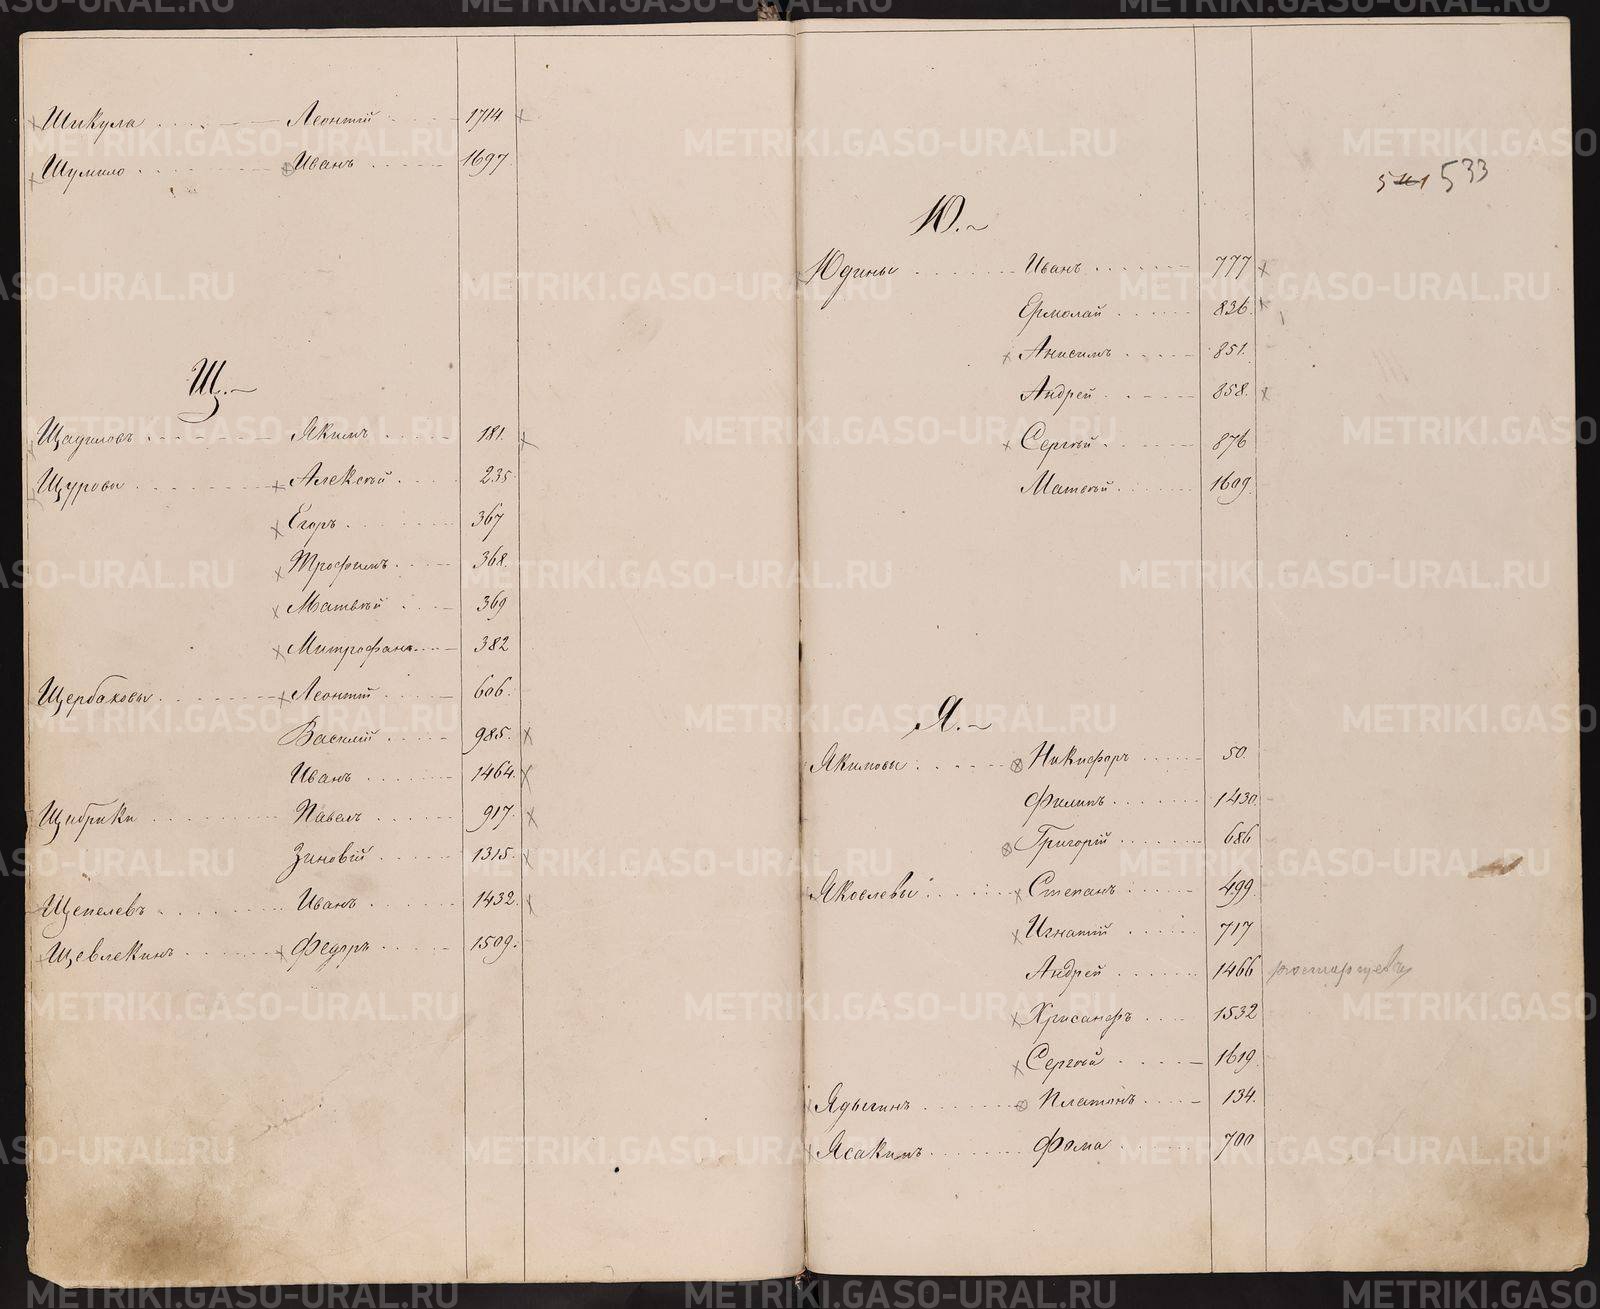 Шикула Леонтій 1714
Шумило Иванъ 1697
Щ.
Якимъ 181.
Щуровы Алексѣй 235
Егоръ 367
Трофимъ 368.
Матвѣй 369
Митрофанъ 382
Щербаковы Леонтій 606.
Василій 985.
Иванъ 1464.
Щибрики Павелъ 917.
Зиновій 1315.
Щепелевъ Иванъ 1432.
Щевлекинъ Федоръ 1509.
533
Ю.
Юдины Иванъ 777
Ермолай 836.
Анисимъ 851.
Андрей 858.
Сергѣй 876
Матвѣй 1609.
Я.
Якимовы Никифоръ 50.
Филипъ 1430.
Григорій 686
Яковлевы Степанъ 499.
Игнатій 717
Андрей 1466
Хрисанфъ 1532
Сергѣй 1619.
Ядыгинъ Платонъ 134.
Ясакинъ Фома 700
METRIKI.GASO-URAL.RU